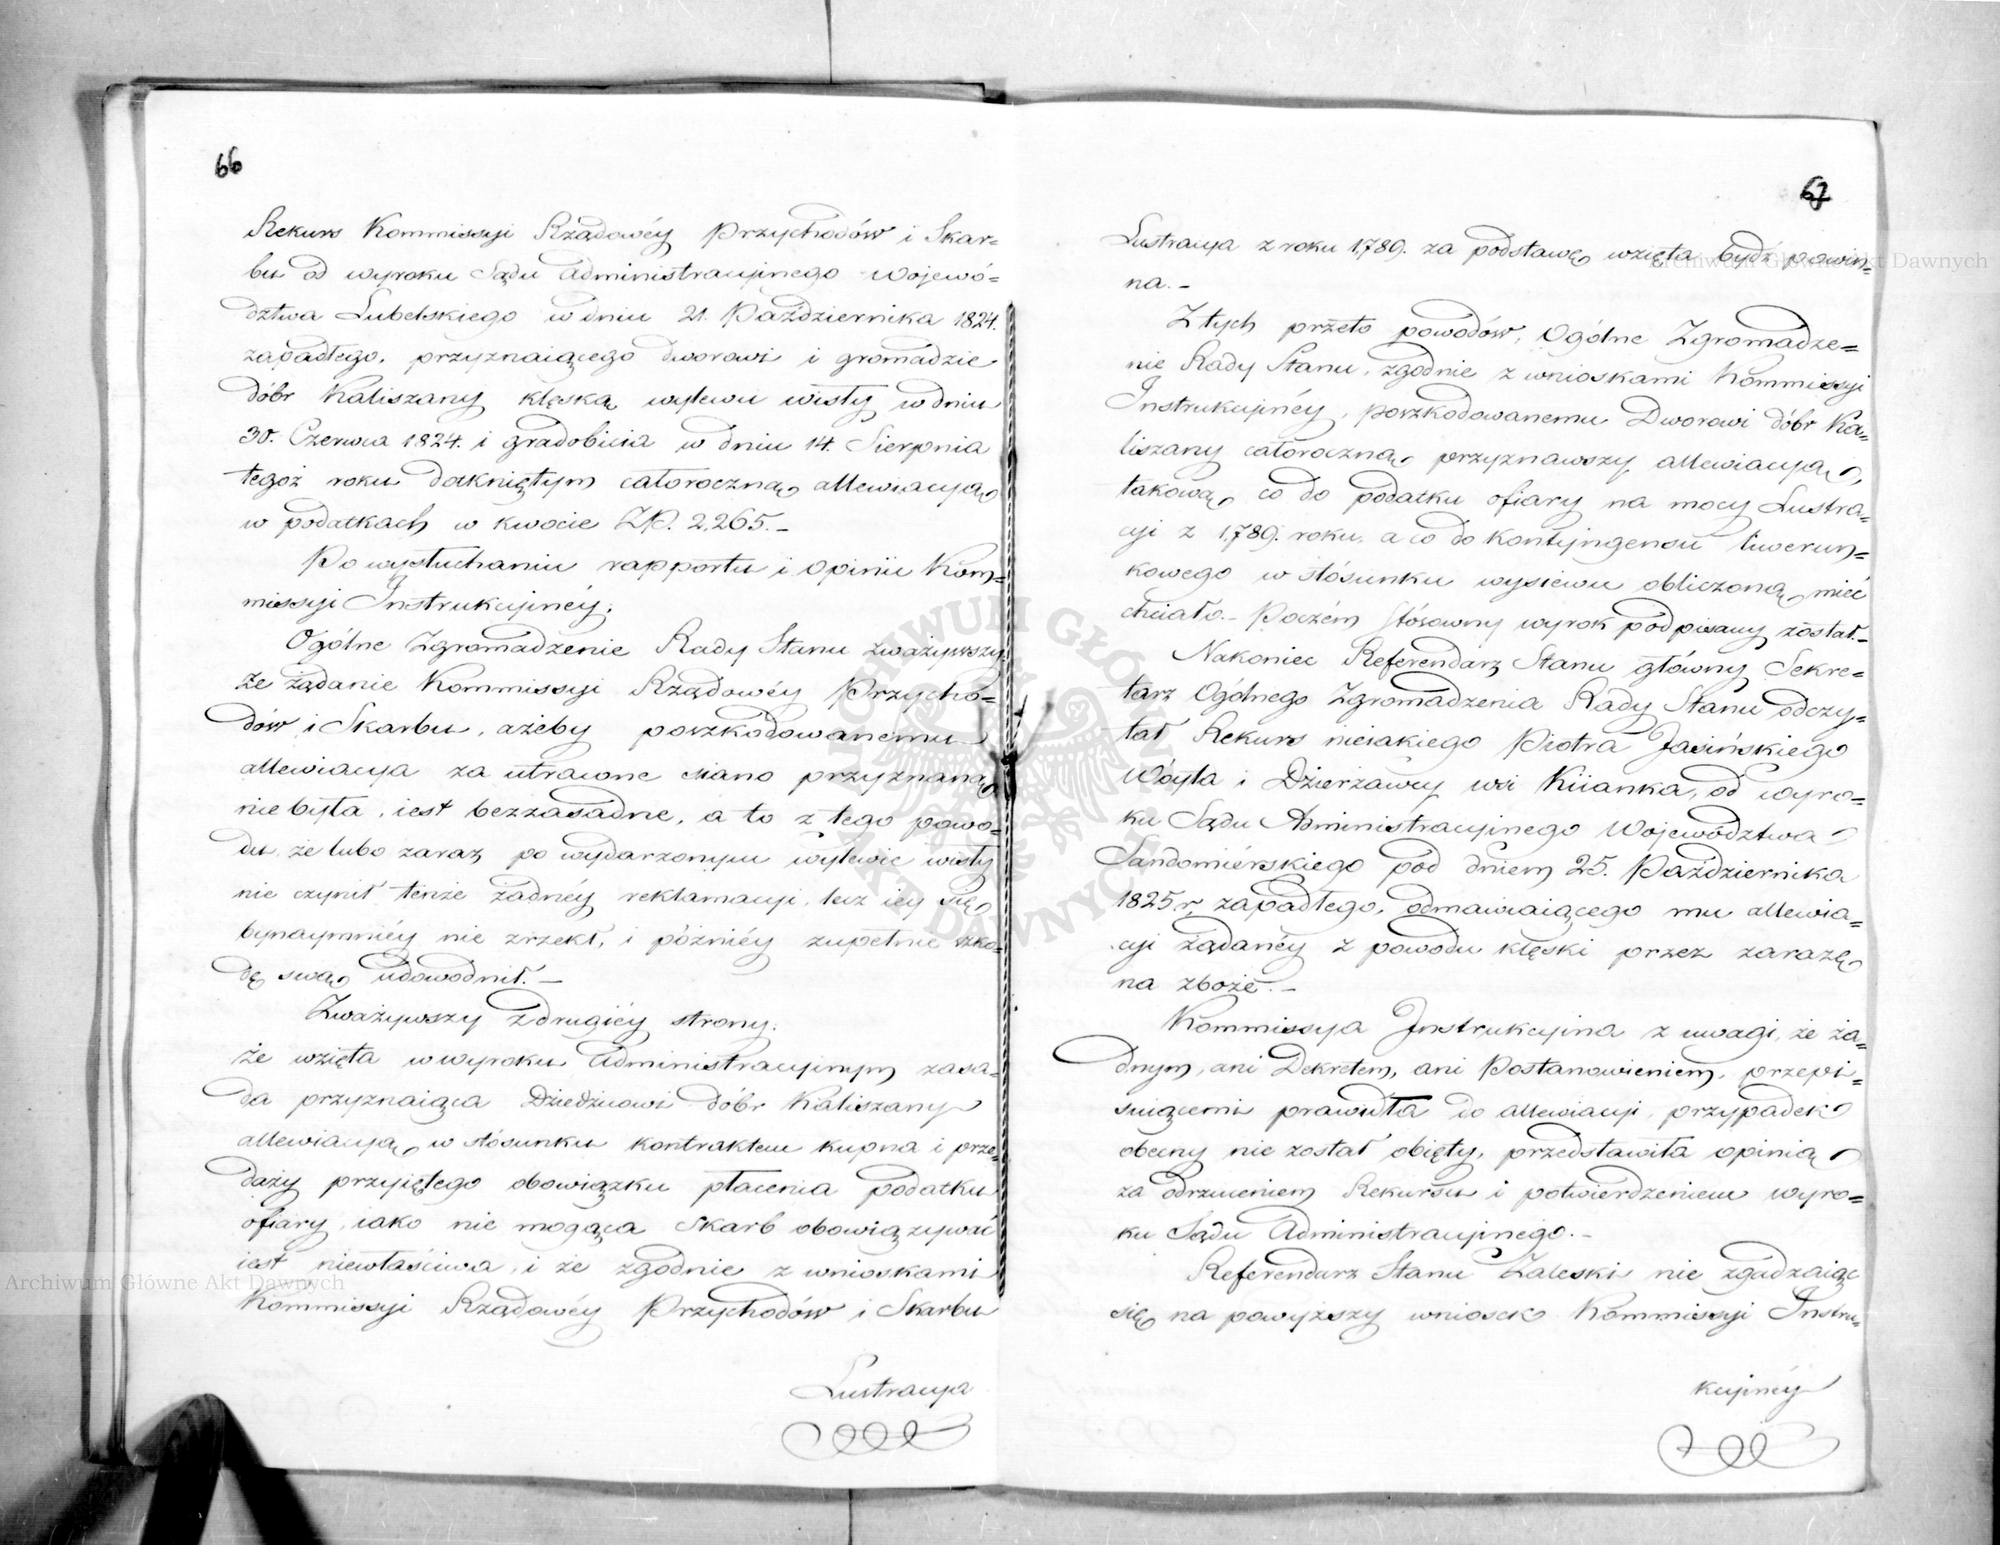 66
Rekurs Kommissyi Rządowéy Przychodów i Skar=
bu od wyroku Sądu Administracyinego Wojewó=
dztwa Lubelskiego w dniu 21. Października 1824.
zapadłego, przyznaiącego dworowi i gromadzie
dóbr Kaliszany klęską wylewu wisły w dniu
30. Czerwca 1824. i gradobicia w dniu 14. Sierpnia
tegoż roku dotkniętym całoroczną allewiacyą
w podatkach w kwocie ZP. 2,265.—
Po wysłuchaniu rapportu i opinii Kom=
missyi Instrukcyinéy;
Ogólne Zgromadzenie Rady Stanu zważywszy
że żądanie Kommissyi Rządowéy Przycho=
dów i Skarbu, ażeby poszkodowanemu
allewiacya za utracone siano przyznaną
nie była, iest bezzasadne, a to z tego powo=
du, że lubo zaraz po wydarzonym wylewie wisły
nie czynił tenże żadnéy reklamacyi, lecz iey się
bynaymniéy nie zrzekł, i późniéy zupełnie szko=
dę swą udowodnił.—
Zważywszy z drugiéy strony;
że wzięta w wyroku Administracyinym zasa=
da przyznaiąca Dziedzicowi dóbr Kaliszany
allewiacyą w stósunku kontraktem kupna i prze=
daży przyiętego obowiązku płacenia podatku
ofiary, iako nie mogąca Skarb obowiązywać
iest niewłaściwa, i że zgodnie z wnioskami
Kommissyi Rządowéy Przychodów i Skarbu
Lustracya
67
Lustracya z roku 1789. za podstawę wzięta bydź powin=
na.—
Z tych przeto powodów, Ogólne Zgromadze=
nie Rady Stanu, zgodnie z wnioskami Kommissyi
Instrukcyinéy, poszkodowanemu Dworowi dóbr Ka=
liszany całoroczną przyznawszy allewiacyą,
takową co do podatku ofiary na mocy Lustra=
cyi z 1789. roku, a co do kontyngensu liwerun=
kowego w stósunku wysiewu obliczoną mieć
chciało.— Poczém stósowny wyrok podpisany został.—
Nakoniec Referendarz Stanu główny Sekre=
tarz Ogólnego Zgromadzenia Rady Stanu odczy=
tał Rekurs nieiakiego Piotra Jasińskiego
Wóyta i Dzierżawcy wsi Kiianka, od wyro=
ku Sądu Administracyinego Województwa
Sandomiérskiego pod dniem 25. Października
1825. r. zapadłego, odmawiaiącego mu allewia=
cyi żądanéy z powodu klęski przez zarazę
na zboże.—
Kommissya Instrukcyina z uwagi, że ża=
dnym, ani Dekretem, ani Postanowieniem, przepi=
suiącemi prawidła do allewiacyi, przypadek
obecny nie został obięty, przedstawiła opinią
za odrzuceniem Rekursu i potwierdzeniem wyro=
ku Sądu Administracyinego.—
Referendarz Stanu Zaleski nie zgadzaiąc
się na powyższy wniosek Kommissyi Instru=
kcyinéy
Archiwum Główne Akt Dawnych
Archiwum Główne Akt Dawnych
ARCHIWUM GŁÓWNE AKT DAWNYCH